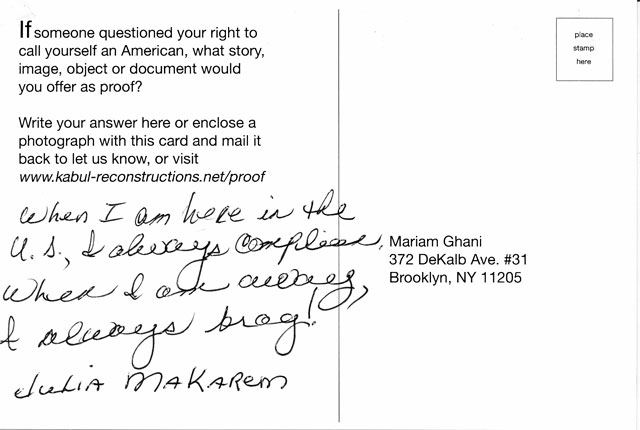 If someone questioned your right to
call yourself an American, what story,
image, object or document would
you offer as proof?
Write your answer here or enclose a
photograph with this card and mail it
back to let us know, or visit
www.kabul-reconstructions.net/proof
When I am here in the
U.S., I always complain,
When I am away,
I always brag!
Julia Makarem
place
stamp
here
Mariam Ghani
372 DeKalb Ave. #31
Brooklyn, NY 11205